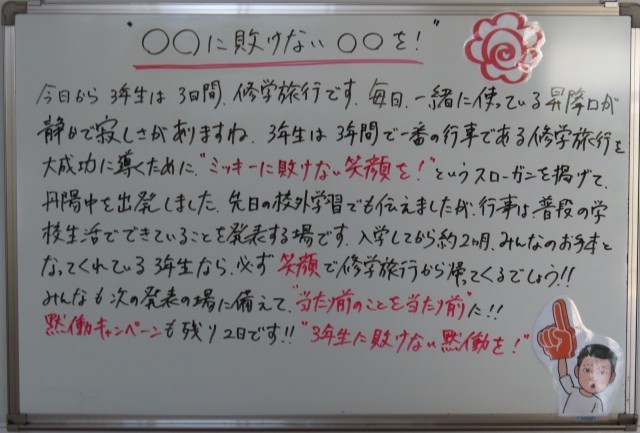 "○○に敗けない○○を!"
今日から3年生は3日間、修学旅行です。毎日、一緒に使っている昇降口が
静かで寂しさがありますね。3年生は3年間で一番の行事である修学旅行を
大成功に導くために、"ミッキーに敗けない笑顔を!"というスローガンを掲げて、
丹陽中を出発しました。先日の校外学習でも伝えましたが、行事は普段の学
校生活でできていることを発表する場です。入学してから約2ヵ月、みんなのお手本と
なってくれている3年生なら、必ず笑顔で修学旅行から帰ってくるでしょう!!
みんなも次の発表の場に備えて、"当たり前のことを当たり前"に!!
黙働キャンペーンも残り2日です!!"3年生に敗けない黙働を!"